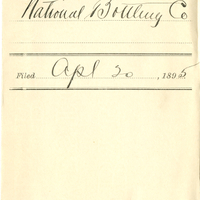 National Bottling Co
Filed Apl 20 , 1895